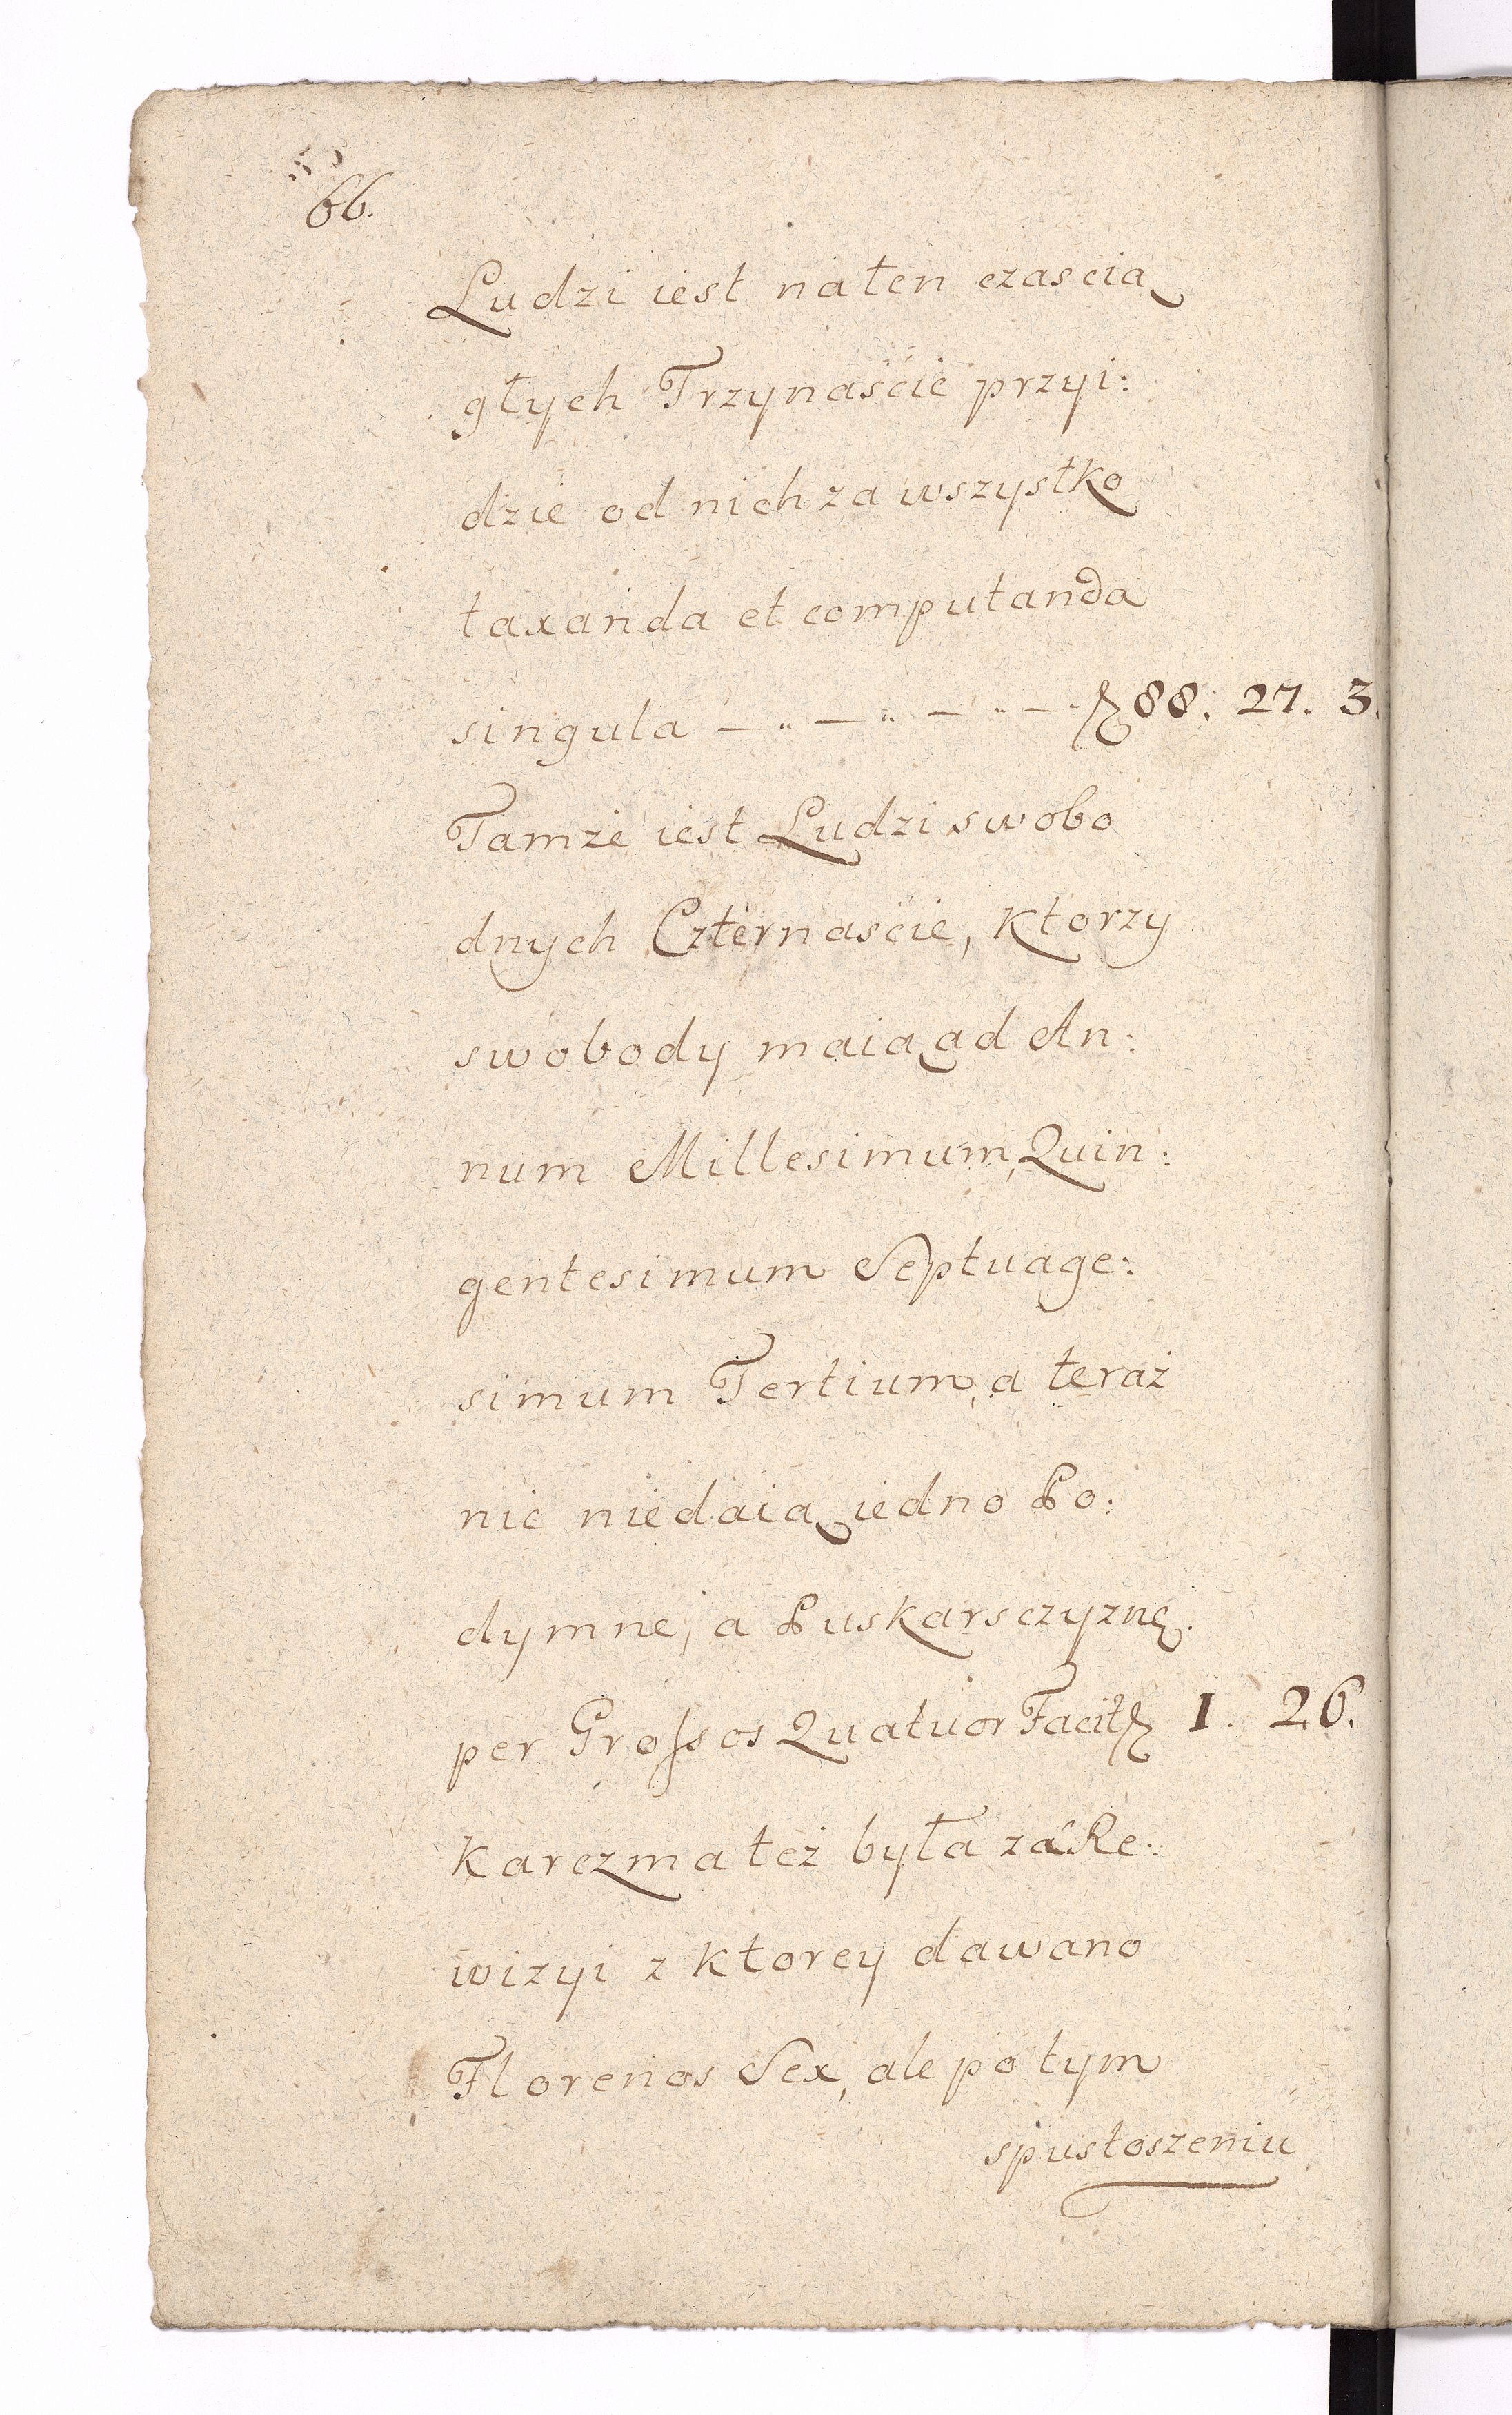 66.
Ludzi iest naten czas cia
głych Trzynaście przyi:
dzie od nich za wszystko
taxanda et computanda
singula — „ — „ — „ — 88. 27. 3.
Tamże iest Ludzi swobo
dnych Czternaście, ktorzy
swobody maią ad An:
num Millesimum Quin:
gentesimum Septuage:
simum Tertium, a teraż
nic niedaią iedno Po:
dymne, a Puskarsczyznę.
per Grossos Quatuor Facit 1. 26.
Karczma też była za Re:
wizyi z ktorey dawano
Florenos Sex, ale po tym
spustoszeniu